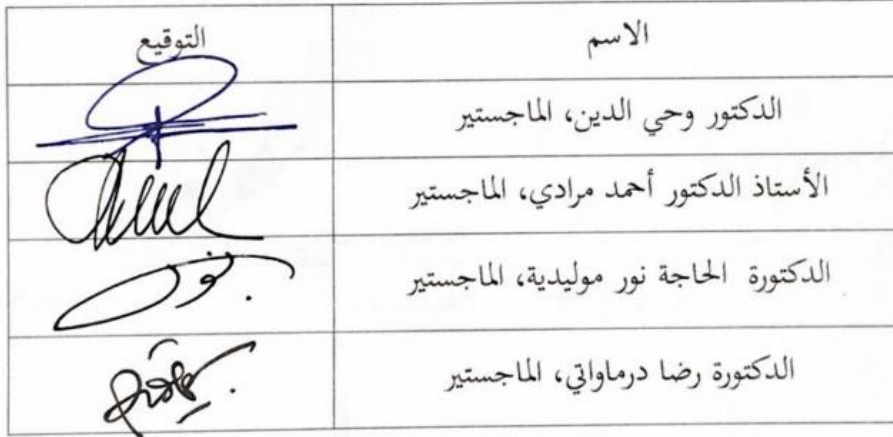 الاسم
التوقيع
الدكتور وحي الدين، الماجستير
الأستاذ الدكتور أحمد مرادي، الماجستير
الدكتورة الحاجة نور موليدية، الماجستير
الدكتورة رضا درماواتي، الماجستير